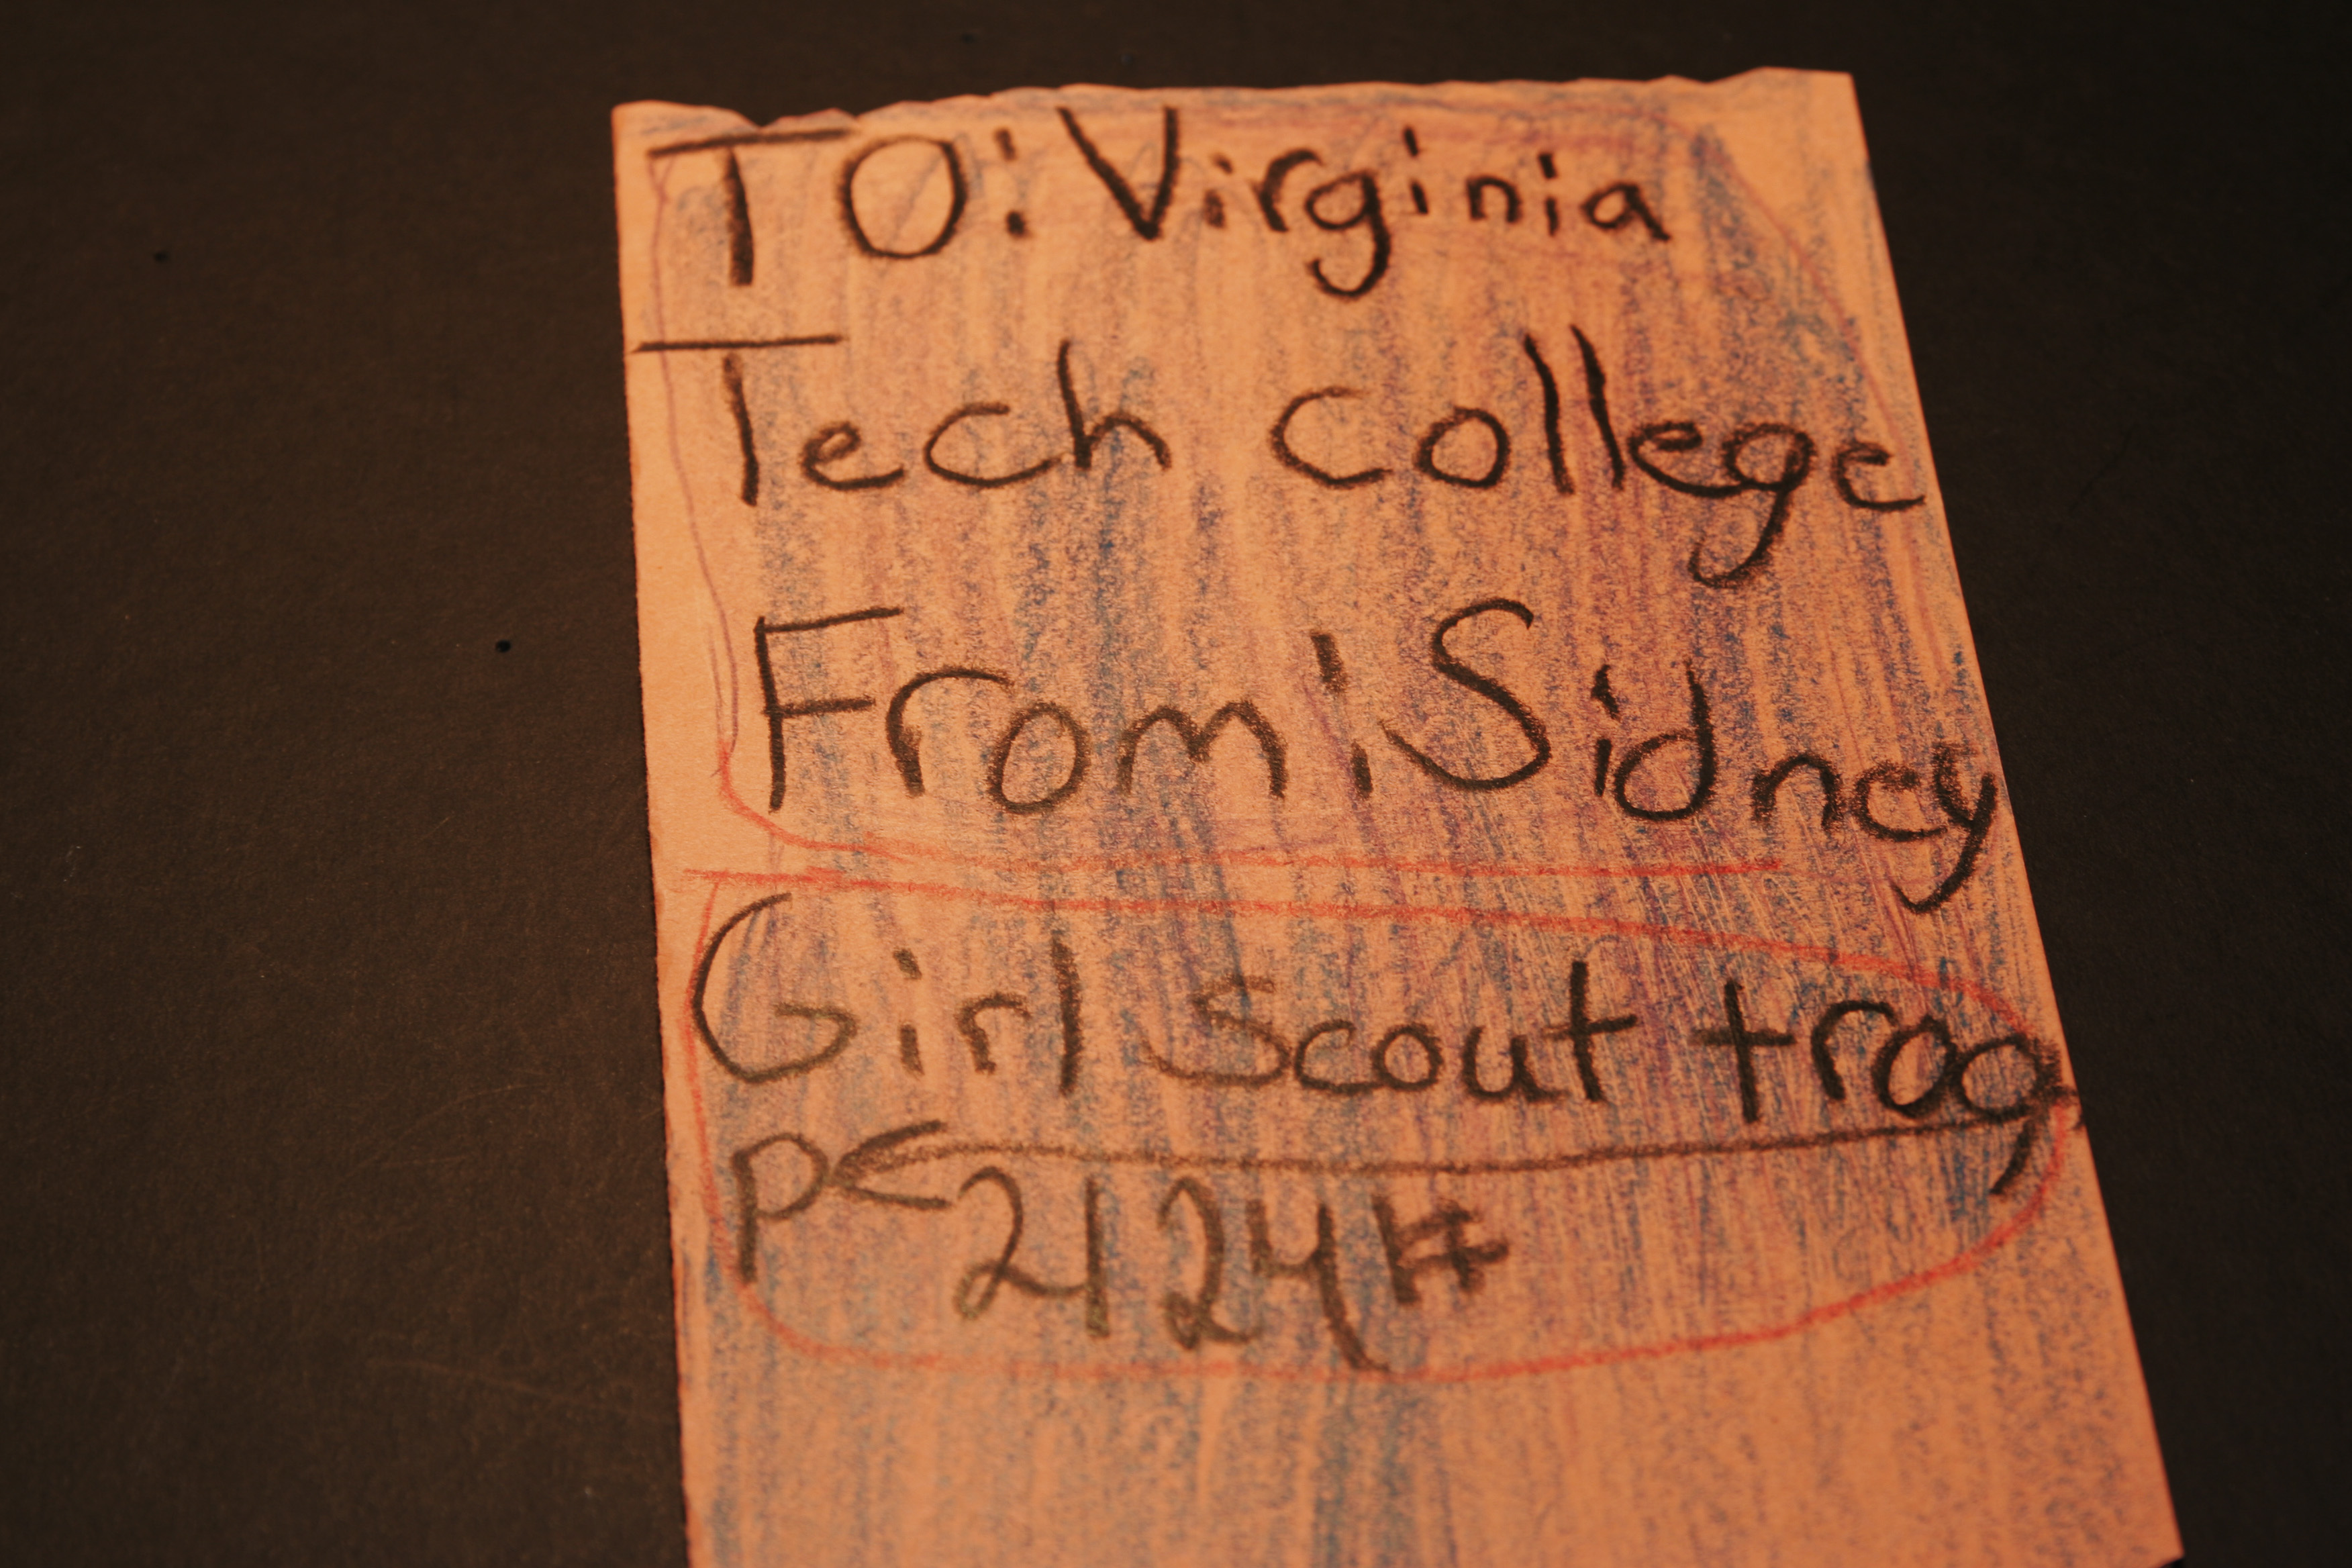 TO: Virginia
Tech college
From: Sidney
Girl scout troo
p 2124#